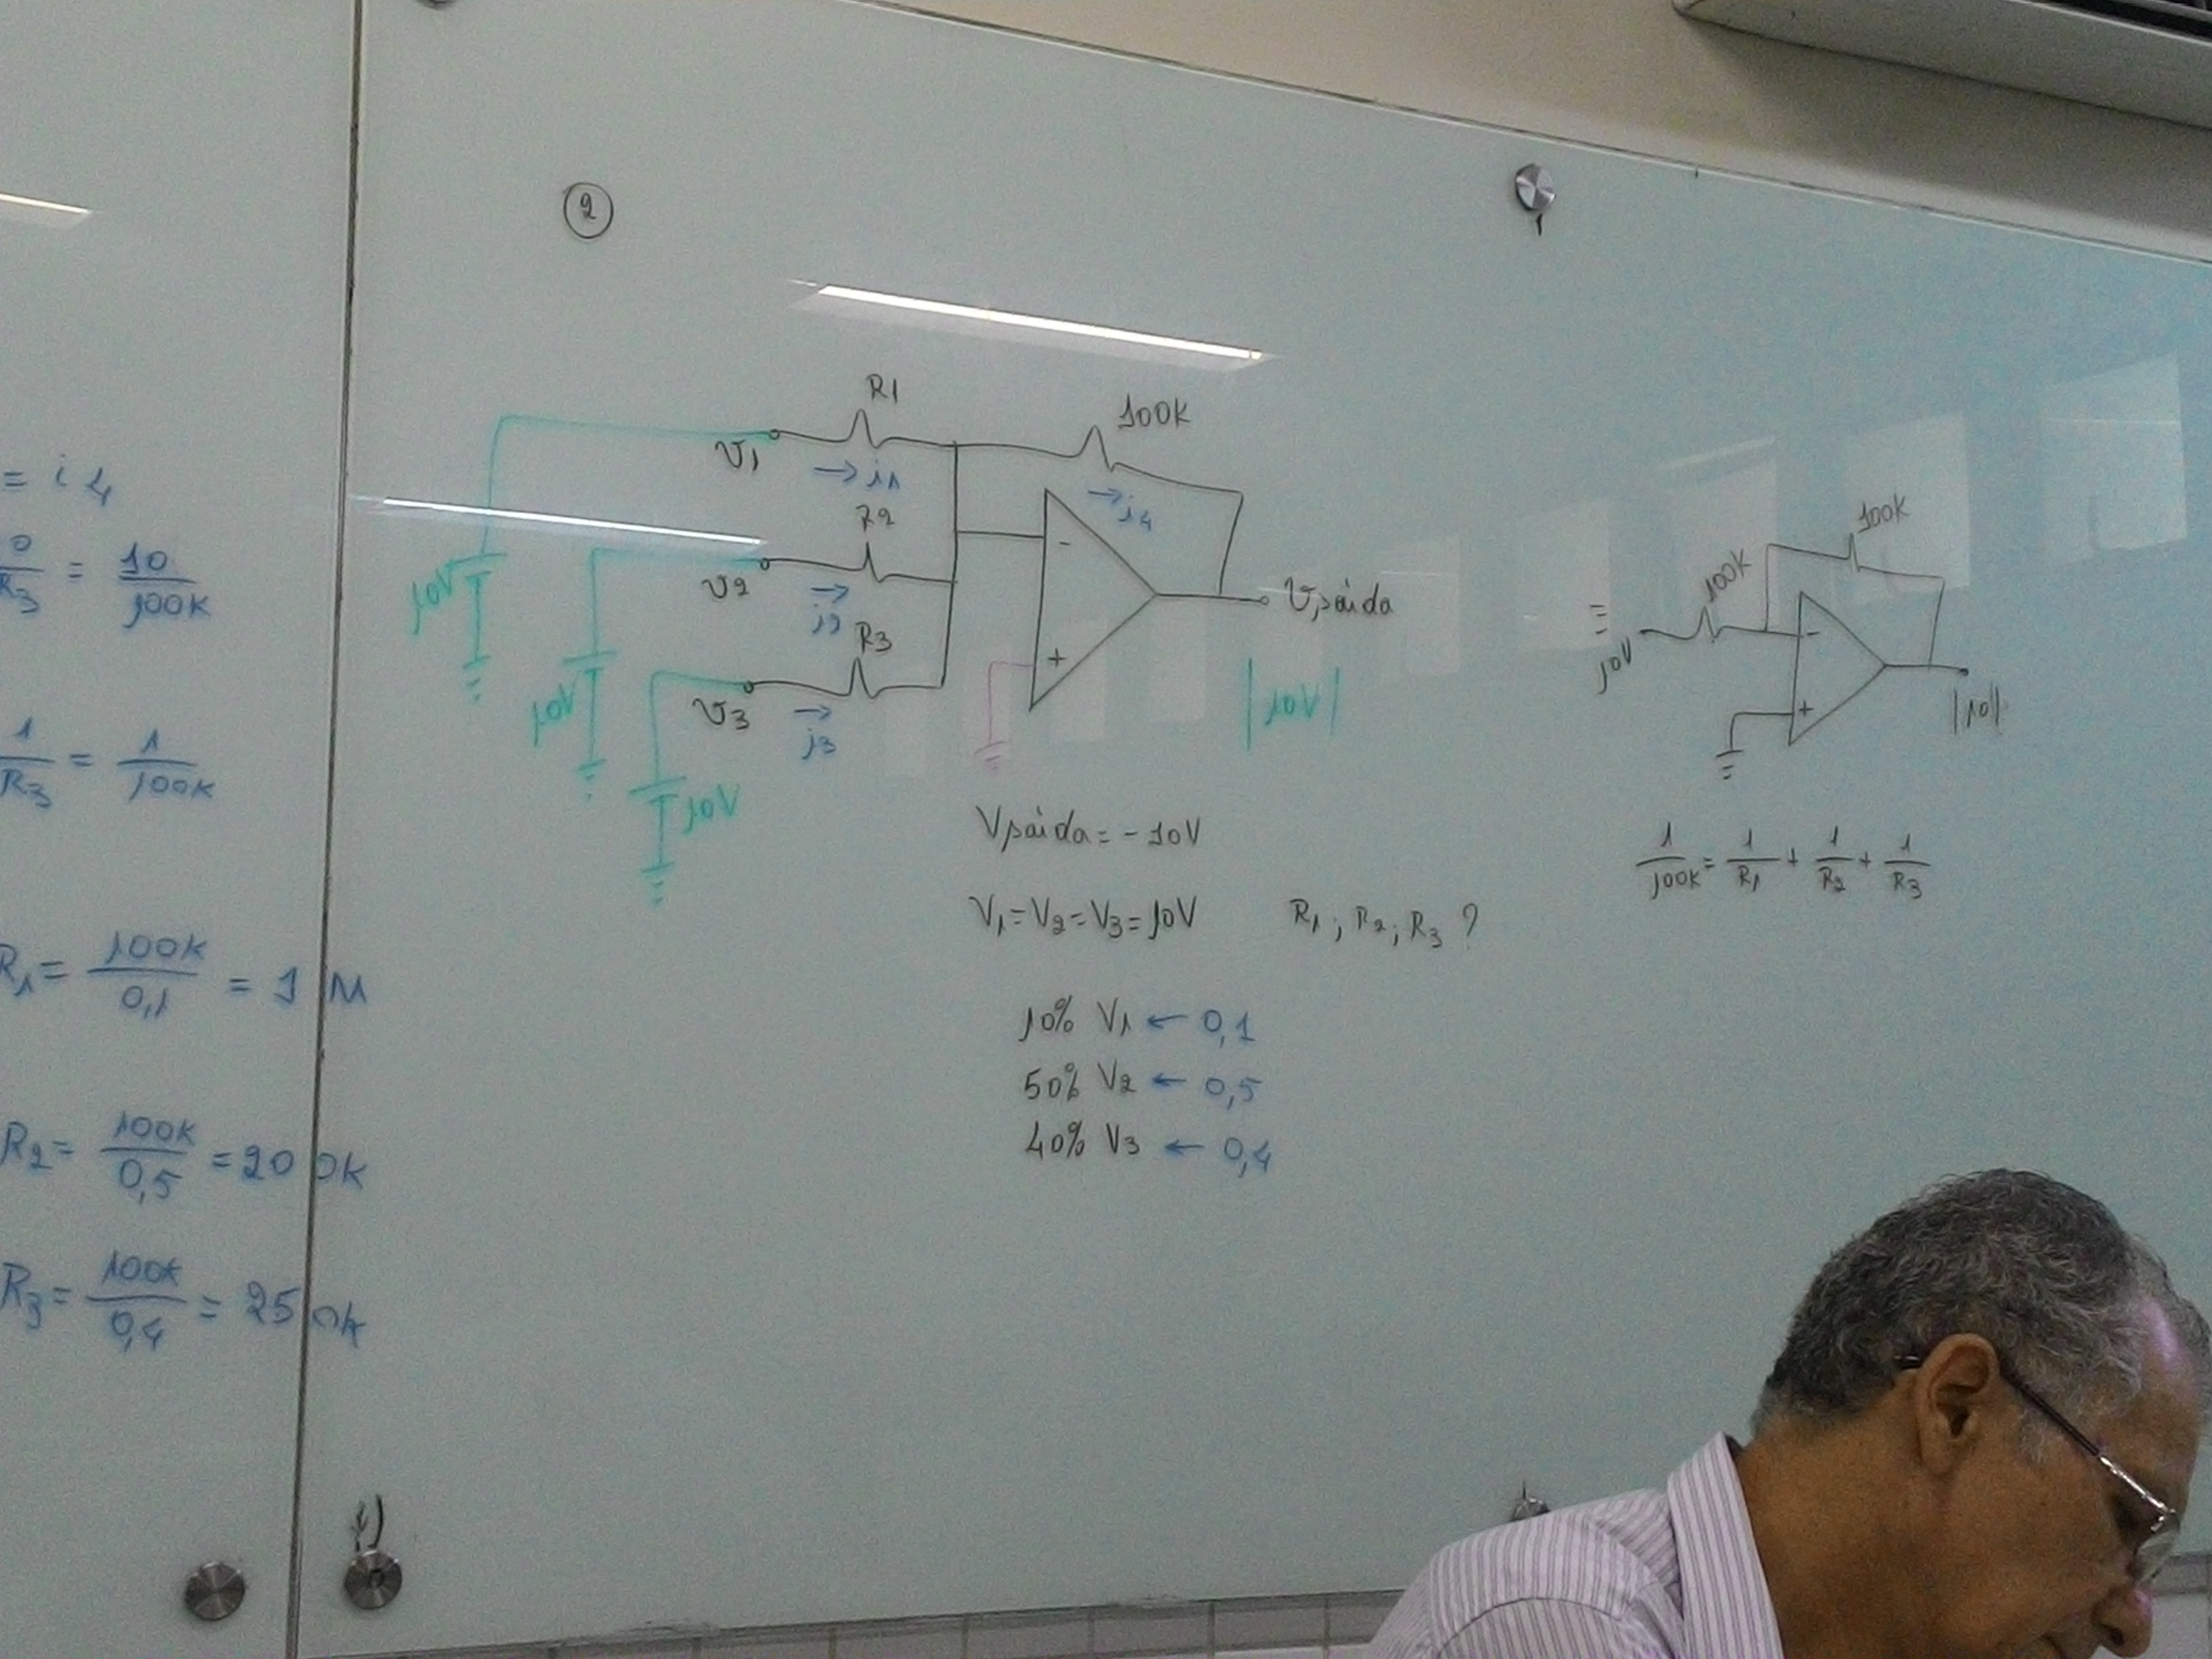 = i4
0/R3 = 10/100K
1/R3 = 1/100K
R1 = 100K/0,1 = 1M
R2 = 100K/0,5 = 200K
R3 = 100K/0,4 = 250K
2
R1
100K
V1
→ i1
→ i4
R2
10V
V2
→ i2
-
Vsaída
R3
+
10V
V3
→ i3
|10V|
10V
Vsaída = -10V
V1 = V2 = V3 = 10V R1; R2; R3 ?
10% V1 ← 0,1
50% V2 ← 0,5
40% V3 ← 0,4
100K
100K
≡
10V
-
+
|10|
1/100K = 1/R1 + 1/R2 + 1/R3